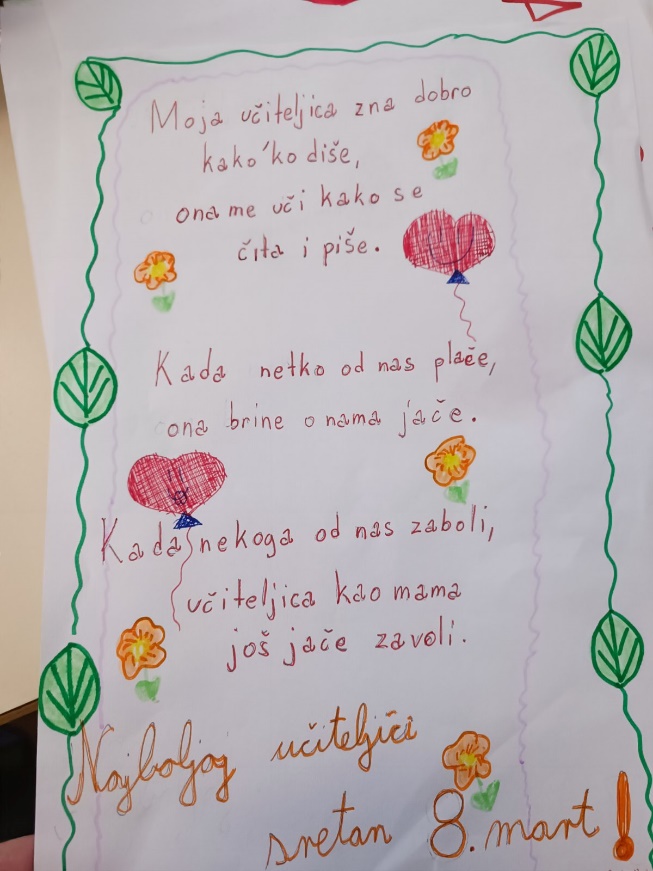 Moja učiteljica zna dobro
kako 'ko diše,
ona me uči kako se
čita i piše.
Kada netko od nas plače,
ona brine o nama jače.
Kada nekoga od nas zaboli,
učiteljica kao mama
još jače zavoli.
Najboljoj učiteljici
sretan 8. mart!